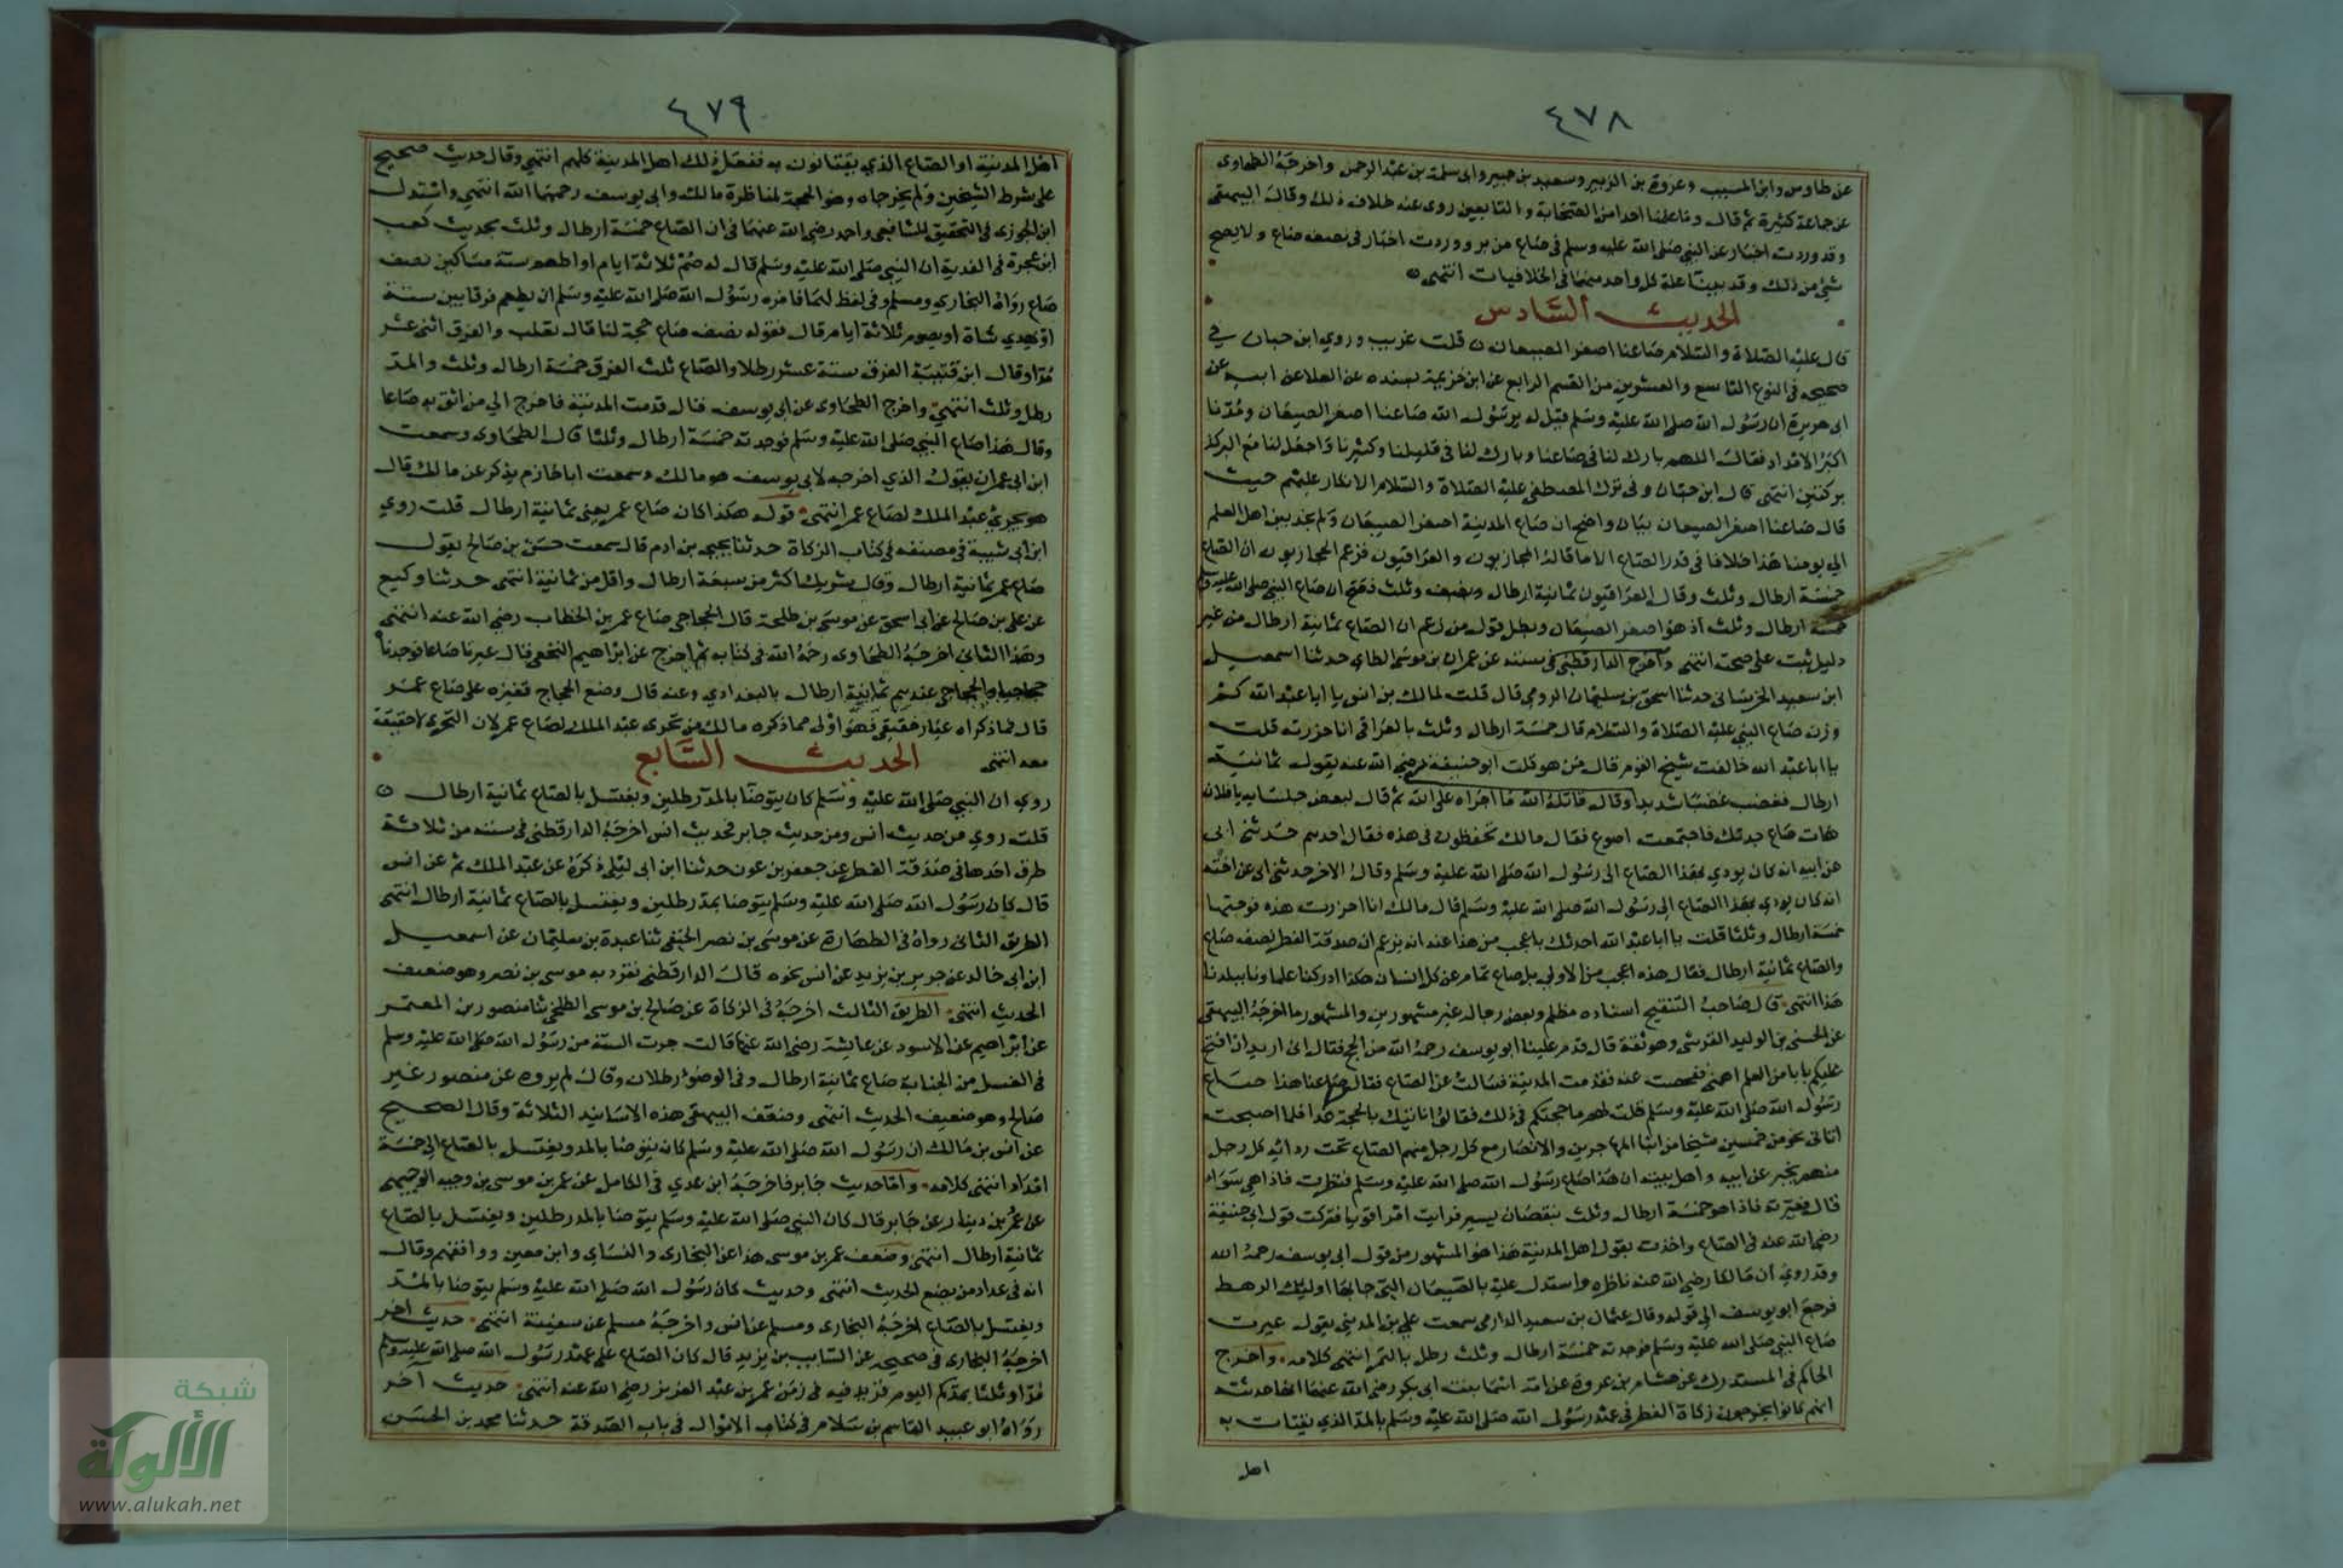 ٤٧٨
عن طاوس وابن المسيب وعروة بن الزبير وسعيد بن جبير وابى سلمة بن عبد الرحمن واخرجه الطحاوى
عن جماعة كثيرة ثم قال وما علمنا احدا من الصحابة والتابعين روى عنه خلاف ذلك وقال البيهقى
وقد وردت اخبار عن النبي صلى الله عليه وسلم فى صاع من بر ووردت اخبار فى نصف صاع ولا يصح
شئ من ذلك وقد بينا علة كل واحد منها فى الخلافيات انتهى
الحديث السادس
قال عليه الصلاة والسلام صاعنا اصغر الصيعان قلت غريب وروي ابن حبان في
صحيحه فى النوع التاسع والعشرين من القسم الرابع عن ابن خزيمة بسنده عن العلا عن ابيه عن
ابى هريرة ان رسول الله صلى الله عليه وسلم قيل له يرسول الله صاعنا اصغر الصيعان ومدنا
اكبر الامداد فقال اللهم بارك لنا فى صاعنا وبارك لنا فى قليلنا وكثيرنا واجعل لنا مع البركة
بركتين انتهى قال ابن حبان وفى ترك المصطفى عليه الصلاة والسلام الانكار عليهم حيث
قال صاعنا اصغر الصيعان بيان واضح ان صاع المدينة اصغر الصيعان ولم نجد بين اهل العلم
الي يومنا هذا خلافا فى قدر الصاع الا ما قاله الحجازيون والعراقيون فزعم الحجازيون ان الصاع
خمسة ارطال وثلث وقال العراقيون ثمانية ارطال ونصف وثلث فصح ان صاع النبي صلى الله عليه وسلم
خمسة ارطال وثلث اذ هو اصغر الصيعان وبطل قول من زعم ان الصاع ثمانية ارطال من غير
دليل ثبت على صحته انتهى واخرج الدارقطنى فى سننه عن عمران بن موسى الطاى حدثنا اسمعيل
ابن سعيد الخرسانى حدثنا اسحق بن سليمان الرومي قال قلت لمالك بن انس يا ابا عبد الله كم
وزن صاع النبي عليه الصلاة والسلام قال خمسة ارطال وثلث بالعراقى انا حزرته قلت
يا ابا عبد الله خالفت شيخ القوم قال من هو قلت ابو حنيفة رضى الله عنه يقول ثمانية
ارطال فغضب غضبا شديدا وقال قاتله الله ما اجراه على الله ثم قال لبعض جلسايه يا فلان
هات صاع جدتك فاجتمعت اصوع فقال مالك تحفظون فى هذه فقال احدهم حدثنى ابى
عن ابيه انه كان يودي بهذا الصاع الى رسول الله صلى الله عليه وسلم وقال الاخر حدثنى ابى عن اخته
انه كان يودى بهذا الصاع الى رسول الله صلى الله عليه وسلم قال مالك انا حزرت هذه فوجدتها
خمسة ارطال وثلثا قلت يا ابا عبد الله احدثك باعجب من هذا عنه انه يزعم ان صدقة الفطر نصف صاع
والصاع ثمانية ارطال فقال هذه اعجب من الاولى بل صاع تمام عن كل انسان هكذا ادركنا علما ونا ببلدنا
هذا انتهى قال صاحب التنقيح اسناده مظلم وبعض رجاله غير مشهورين والمشهور ما اخرجه البيهقى
عن الحسن بن الوليد القرشى وهو ثقة قال قدم علينا ابو يوسف رحمه الله من الحج فقال انى اريد ان افتح
عليكم بابا من العلم اهمنى ففحصت عنه فقدمت المدينة فسالت عن الصاع فقال صاعنا هذا صاع
رسول الله صلى الله عليه وسلم قلت لهم ما حجتكم فى ذلك فقالوا ناتيك بالحجة غدا فلما اصبحت
اتانى نحو من خمسين شيخا من ابنا المهاجرين والانصار مع كل رجل منهم الصاع تحت ردائه كل رجل
منهم يخبر عن ابيه واهل بيته ان هذا صاع رسول الله صلى الله عليه وسلم فنظرت فاذا هى سواء
قال فعيرته فاذا هو خمسة ارطال وثلث بنقصان يسير فرايت امرا قويا فتركت قول ابى حنيفة
رضى الله عنه فى الصاع واخذت بقول اهل المدينة هذا هو المشهور من قول ابى يوسف رحمه الله
وقد روي ان مالكا رضى الله عنه ناظره واستدل عليه بالصيعان التى جا بها اوليك الرهط
فرجع ابو يوسف الى قوله وقال عثمان بن سعيد الدارمى سمعت على بن المدينى يقول عيرت
صاع النبى صلى الله عليه وسلم فوجدته خمسة ارطال وثلث رطل بالتمر انتهى كلامه واخرج
الحاكم فى المستدرك عن هشام بن عروة عن امه اسما بنت ابى بكر رضى الله عنهما انها حدثته
انهم كانوا يخرجون زكاة الفطر فى عهد رسول الله صلى الله عليه وسلم بالمد الذي يقتات به
اهل
٤٧٩
اهل المدينة او الصاع الذي يقتاتون به ففعل ذلك اهل المدينة كلهم انتهى وقال حديث صحيح
على شرط الشيخين ولم يخرجاه وهو الحجة لمناظرة مالك وابى يوسف رحمهما الله انتهى واستدل
ابن الجوزى فى التحقيق للشافعى واحمد رضى الله عنهما فى ان الصاع خمسة ارطال وثلث بحديث كعب
ابن عجرة فى الفدية ان النبي صلى الله عليه وسلم قال له صم ثلاثة ايام او اطعم ستة مساكين نصف
صاع رواه البخاري ومسلم وفى لفظ لهما فامره رسول الله صلى الله عليه وسلم ان يطعم فرقا بين ستة
او يهدي شاة او يصوم ثلاثة ايام قال فقوله نصف صاع حجة لنا قال ثعلب والفرق اثنى عشر
مدا وقال ابن قتيبة الفرق ستة عشر رطلا والصاع ثلث الفرق خمسة ارطال وثلث والمد
رطل وثلث انتهى واخرج الطحاوى عن ابى يوسف قال قدمت المدينة فاخرج الي من اثق به صاعا
وقال هذا صاع النبي صلى الله عليه وسلم فوجدته خمسة ارطال وثلثا قال الطحاوى وسمعت
ابن ابى عمران يقول الذي اخرجه لابى يوسف هو مالك وسمعت ابا حازم يذكر عن مالك قال
هو تحري عبد الملك لصاع عمر انتهى قوله هكذا كان صاع عمر يعنى ثمانية ارطال قلت روي
ابن ابى شيبة فى مصنفه فى كتاب الزكاة حدثنا يحيى بن ادم قال سمعت حسن بن صالح يقول
صاع عمر ثمانية ارطال وقال شريك اكثر من سبعة ارطال واقل من ثمانية انتهى حدثنا وكيع
عن على بن صالح عن ابى اسحق عن موسى بن طلحة قال الحجاجى صاع عمر بن الخطاب رضى الله عنه انتهى
وهذا الثانى اخرجه الطحاوى رحمه الله فى كتابه ثم اخرج عن ابراهيم النخعى قال عيرنا صاعا فوجدناه
حجاجيا والحجاجى عندهم ثمانية ارطال بالبغدادي وعنه قال وضع الحجاج قفيزه على صاع عمر
قال فما ذكراه عيار حقيقى فهو اولى مما ذكره مالك من تحرى عبد الملك لصاع عمر لان التحرى لا حقيقة
معه انتهى
الحديث السابع
روي ان النبي صلى الله عليه وسلم كان يتوضا بالمد رطلين ويغتسل بالصاع ثمانية ارطال
قلت روي من حديث انس ومن حديث جابر فحديث انس اخرجه الدارقطنى فى سننه من ثلاثة
طرق احدها فى صدقة الفطر عن جعفر بن عون حدثنا ابن ابى ليلى ذكره عن عبد الملك ثم عن انس
قال كان رسول الله صلى الله عليه وسلم يتوضا بمد رطلين ويغتسل بالصاع ثمانية ارطال انتهى
الطريق الثانى رواه فى الطهارة عن موسى بن نصر الحنفى ثنا عبدة بن سليمان عن اسمعيل
ابن ابى خالد عن جرير بن يزيد عن انس نحوه قال الدارقطنى تفرد به موسى بن نصر وهو ضعيف
الحديث انتهى الطريق الثالث اخرجه فى الزكاة عن صالح بن موسى الطلحى ثنا منصور بن المعتمر
عن ابراهيم عن الاسود عن عايشة رضى الله عنها قالت جرت السنة من رسول الله صلى الله عليه وسلم
فى الغسل من الجنابة صاع ثمانية ارطال وفى الوضوء رطلان وقال لم يروه عن منصور غير
صالح وهو ضعيف الحديث انتهى وضعف البيهقى هذه الاسانيد الثلاثة وقال الصحيح
عن انس بن مالك ان رسول الله صلى الله عليه وسلم كان يتوضا بالمد ويغتسل بالصاع الى خمسة
امداد انتهى كلامه واما حديث جابر فاخرجه ابن عدي فى الكامل عن عمر بن موسى بن وجيه الوجيهى
عن عمرو بن دينار عن جابر قال كان النبى صلى الله عليه وسلم يتوضا بالمد رطلين ويغتسل بالصاع
ثمانية ارطال انتهى وضعف عمر بن موسى هذا عن البخارى والنساى وابن معين ووافقهم وقال
انه فى عداد من يضع الحديث انتهى وحديث كان رسول الله صلى الله عليه وسلم يتوضا بالمد
ويغتسل بالصاع اخرجه البخارى ومسلم عن انس واخرجه مسلم عن سفينة انتهى حديث اخر
اخرجه البخارى فى صحيحه عن السايب بن يزيد قال كان الصاع على عهد رسول الله صلى الله عليه وسلم
مدا وثلثا بمدكم اليوم فزيد فيه فى زمن عمر بن عبد العزيز رضى الله عنه انتهى حديث آخر
رواه ابو عبيد القاسم بن سلام فى كتاب الاموال فى باب الصدقة حدثنا محمد بن الحسن
شبكة
الألوكة
www.alukah.net